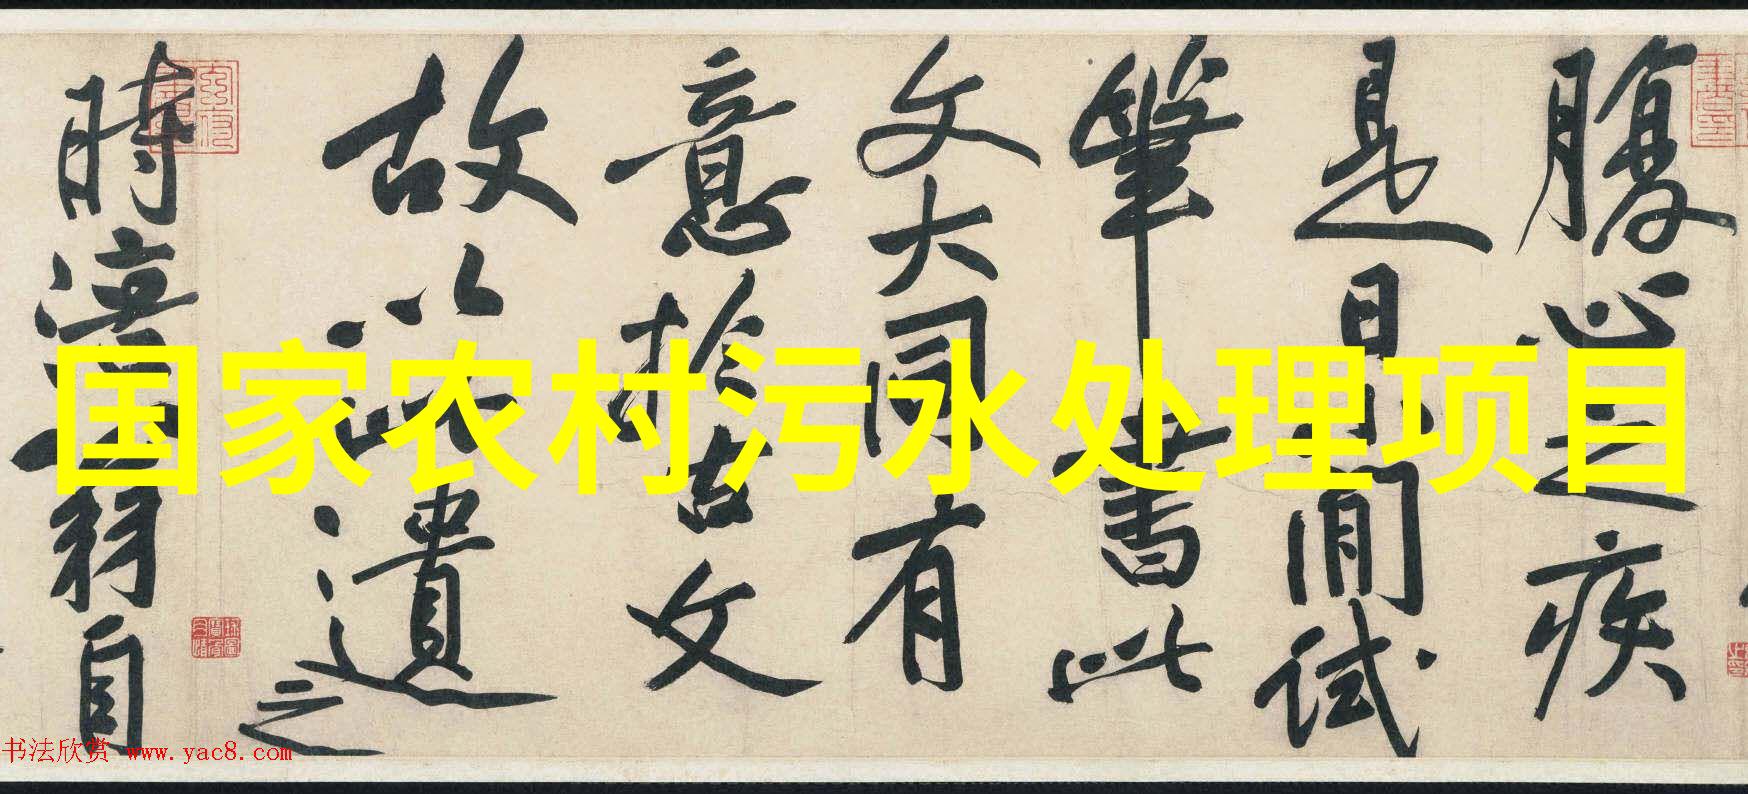 腹心之疾
是日閒試
筆書此
文大同有
意於古文
故以此遺之
時涪翁自
国家农村污水处理项目
书法欣赏 www.yac8.com